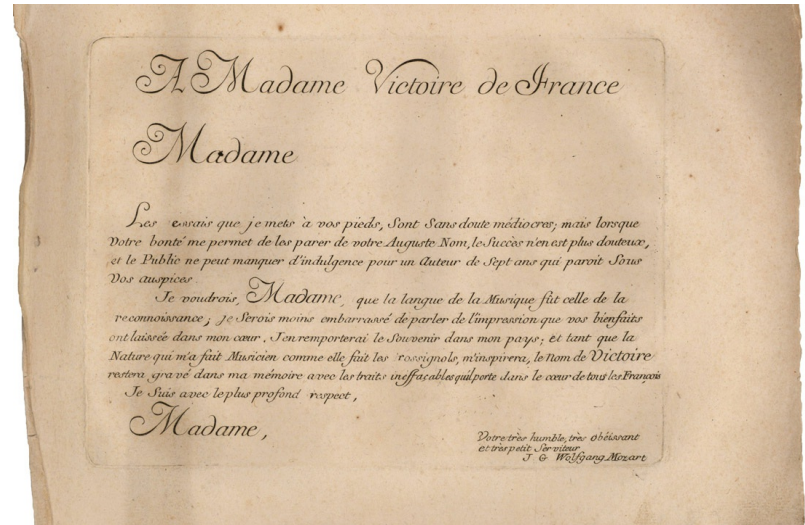 A Madame Victoire de France
Madame
Les essais que je mets à vos pieds, Sont Sans doute médiocres; mais lorsque
Votre bonté me permet de les parer de votre Auguste Nom, le Succès n'en est plus douteux,
et le Public ne peut manquer d'indulgence pour un Auteur de Sept ans qui paroit Sous
Vos auspices
Je voudrois, Madame, que la langue de la Musique fût celle de la
reconnoissance; je Serois moins embarrassé de parler de l'impression que vos bienfaits
ont laissée dans mon cœur. J'en remporterai le Souvenir dans mon pays; et tant que la
Nature qui m'a fait Musicien comme elle fait les rossignols, m'inspirera, le Nom de Victoire
restera gravé dans ma mémoire avec les traits ineffaçables qu'il porte dans le cœur de tous les François
Je Suis avec le plus profond respect,
Madame,
Votre très humble, très obéissant
et très petit Serviteur
J. G. Wolfgang Mozart